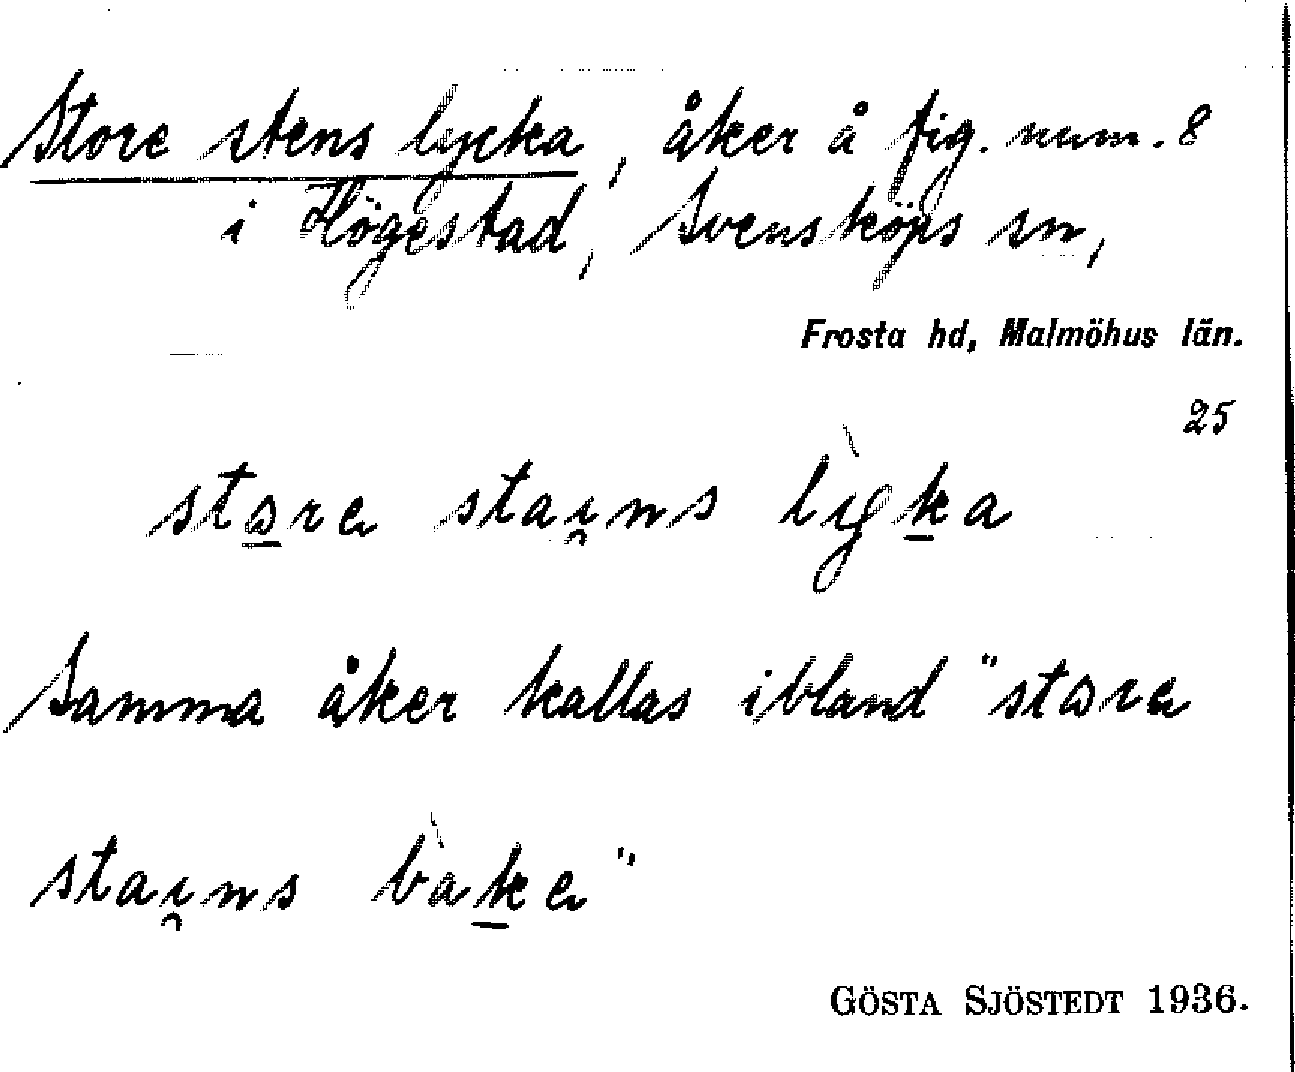 Store stens lycka, åker å fig. num. 8
i Högestad, Svensköps sn,
Frosta hd, Malmöhus län.
25
store stai̯ns lỳka
Samma åker kallas ibland "store
stai̯ns bàke"
GÖSTA SJÖSTEDT 1936.